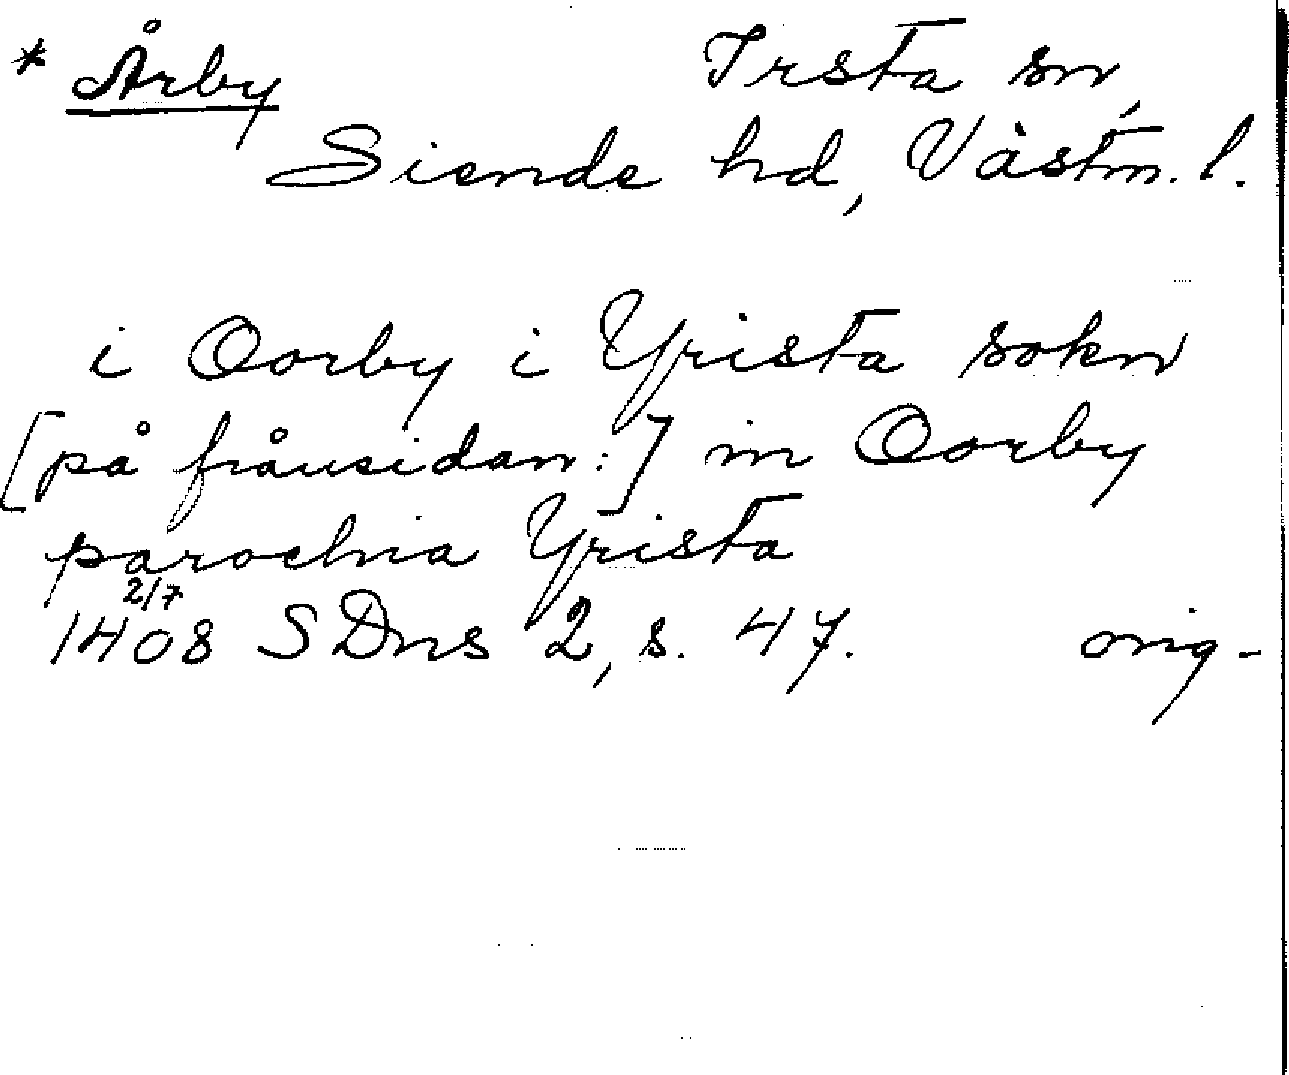 * Årby Irsta sn,
Siende hd, Västm. l.
i Oorby i Yrista sokn
[på frånsidan:] in Oorby
parochia Yrista
2/7
1408 SDns 2, s. 47. orig.